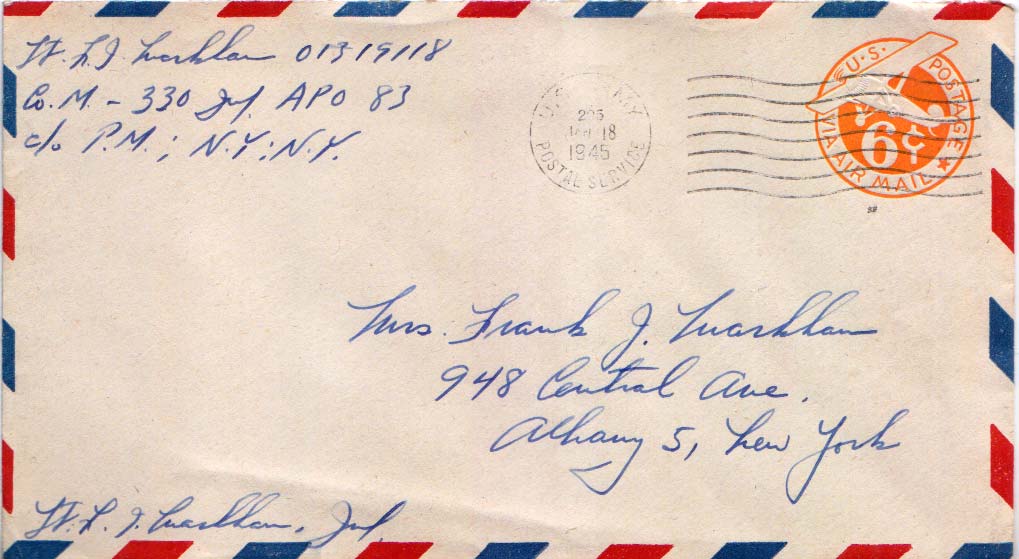 Lt. F. J. Markham 01319118
Co. M. - 330 Inf. APO 83
c/o P.M.; N.Y.; N.Y.
U.S. ARMY
205
JAN 18
1945
POSTAL SERVICE
U.S. POSTAGE
6¢
VIA AIR MAIL
Mrs. Frank J. Markham
948 Central Ave.
Albany 5, New York
Lt. F. J. Markham, Inf.